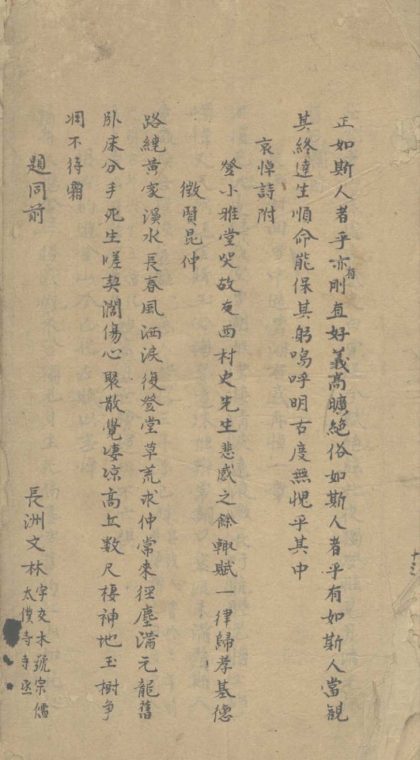 正如斯人者乎亦有剛直好義高曠絕俗如斯人者乎有如斯人當観
其終達生順命能保其躬嗚呼明古度無愧乎其中
哀悼詩附
登小雅堂哭故友西村史先生悲感之餘輙賦一律歸孝基德
徵賢昆仲
路繞黄家溪水長春風洒淚復登堂草荒求仲常來徑塵滿元龍舊
卧床分手死生嗟契濶傷心聚散覺凄凉高丘数尺棲神地玉樹爭
凋不待霜
題同前
長洲文林
字交木號宗儒
太僕寺寺丞